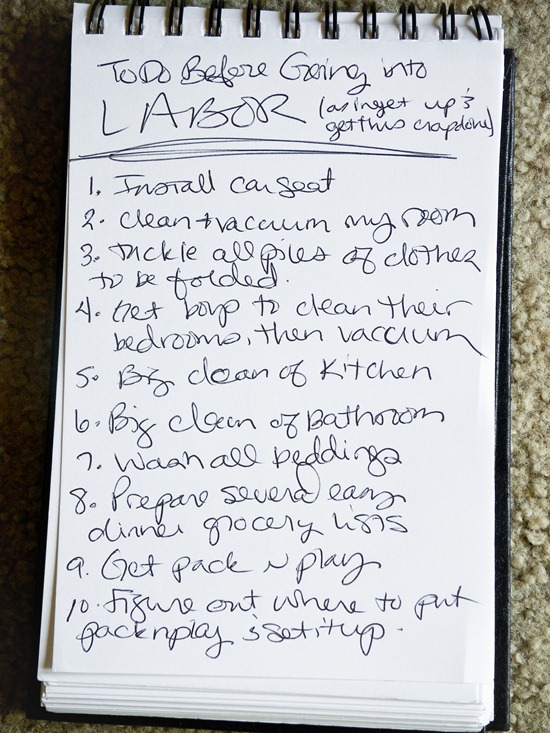 To Do Before Going into
LABOR (as in get up &
get this crap done)
1. Install car seat
2. clean + vacuum my room
3. Tackle all piles of clothes
to be folded.
4. Get boys to clean their
bedrooms, then vacuum
5. Big clean of Kitchen
6. Big clean of Bathroom
7. Wash all beddings
8. Prepare several easy
dinner grocery lists
9. Get pack n play
10. Figure out where to put
pack n play & set it up.